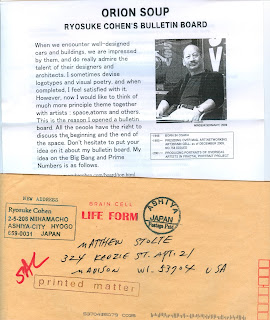 ORION SOUP
RYOSUKE COHEN'S BULLETIN BOARD
When we encounter well-designed
cars and buildings, we are impressed
by them, and do really admire the
talent of their designers and
architects. I sometimes devise
logotypes and visual poetry, and when
completed, I feel satisfied with it.
However, now I would like to think of
much more principle theme together
with artists : space, atoms and others.
This is the reason I opened a bulletin
board. All the people have the right to
discuss the beginning and the end of
the space. Don't hesitate to put your
idea on it about my bulletin board. My
idea on the Big Bang and Prime
Numbers is as follows.
NEW ADDRESS
Ryosuke Cohen
2-5-205 MIHAMACHO
ASHIYA-CITY HYOGO
659-0031 JAPAN
BRAIN CELL
LIFE FORM
ASHIYA
JAPAN
Postage Paid
MATTHEW STOLTE
324 KEDZIE ST. APT. 21
MADISON WI. 53704 USA
printed matter